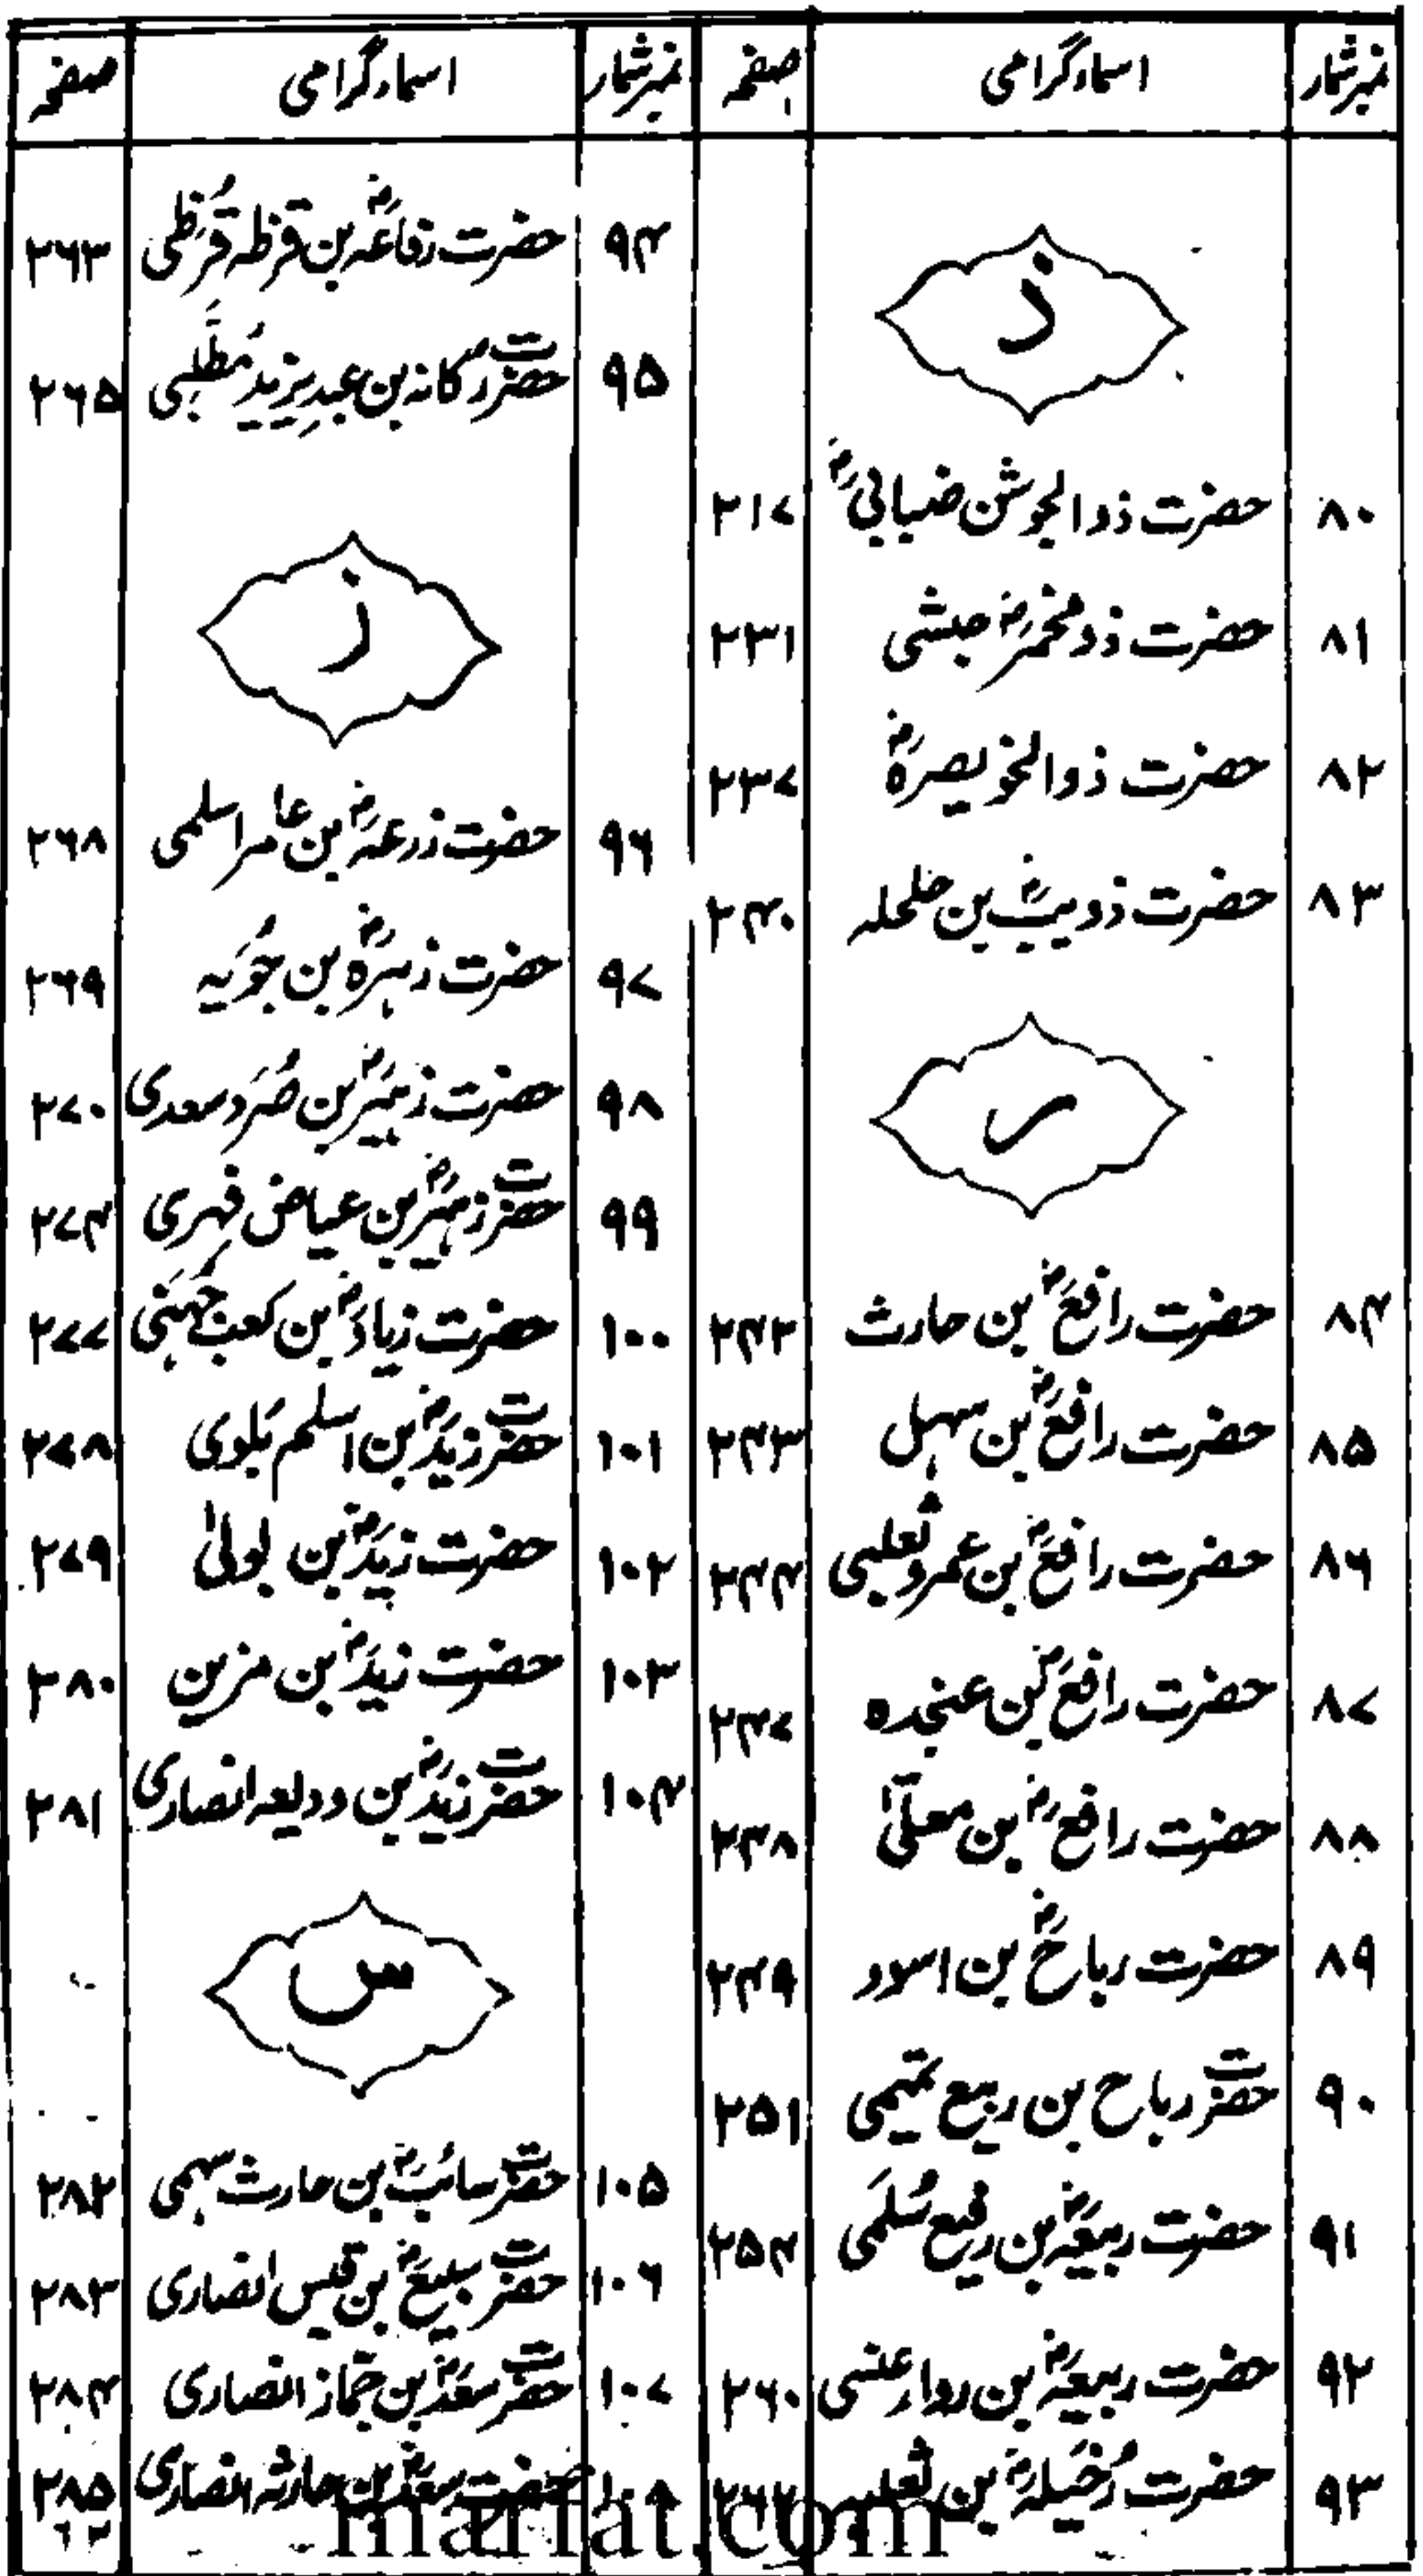 نمبرشمار اسماء گرامی صفحہ
ذ
۸۰ حضرت ذوالجوشن ضبابیؓ ۲۱۷
۸۱ حضرت ذو مخمرؓ حبشی ۲۳۱
۸۲ حضرت ذوالخویصرہؓ ۲۳۷
۸۳ حضرت ذویبؓ بن حلحلہ ۲۴۰
ر
۸۴ حضرت رافعؓ بن حارث ۲۴۲
۸۵ حضرت رافعؓ بن سہل ۲۴۳
۸۶ حضرت رافعؓ بن عمرو ثعلبی ۲۴۴
۸۷ حضرت رافعؓ بن عنجدہ ۲۴۷
۸۸ حضرت رافعؓ بن معلّیٰ ۲۴۸
۸۹ حضرت رباحؓ بن اسود ۲۴۹
۹۰ حضرت رباح بن ربیع تمیمی ۲۵۱
۹۱ حضرت ربیعہؓ بن رفیع سُلَمی ۲۵۴
۹۲ حضرت ربیعہؓ بن رواء عنسی ۲۶۰
۹۳ حضرت رُخَیلہؓ بن ثعلبہ ۲۶۲
نمبرشمار اسماء گرامی صفحہ
۹۴ حضرت رفاعہؓ بن قرظہ قُرَظی ۲۶۳
۹۵ حضرت رکانہ بن عبدِ یزید مُطَّلِبی ۲۶۵
ز
۹۶ حضرت زرعہؓ بن عامر اسلمی ۲۶۸
۹۷ حضرت زہرہؓ بن جُوَیہ ۲۶۹
۹۸ حضرت زہیرؓ بن صُرَد سعدی ۲۷۰
۹۹ حضرت زہیرؓ بن عیاض فہری ۲۷۴
۱۰۰ حضرت زیادؓ بن کعب جُہَنی ۲۷۷
۱۰۱ حضرت زیدؓ بن اسلم بَلوی ۲۷۸
۱۰۲ حضرت زیدؓ بن بولیٰ ۲۷۹
۱۰۳ حضرت زیدؓ بن مزین ۲۸۰
۱۰۴ حضرت زیدؓ بن ودیعہ انصاری ۲۸۱
س
۱۰۵ حضرت سائبؓ بن حارث سہمی ۲۸۲
۱۰۶ حضرت سبیعؓ بن قیس انصاری ۲۸۳
۱۰۷ حضرت سعدؓ بن جماز انصاری ۲۸۴
۱۰۸ حضرت سعدؓ بن حارثہ انصاری ۲۸۵
marfat.com